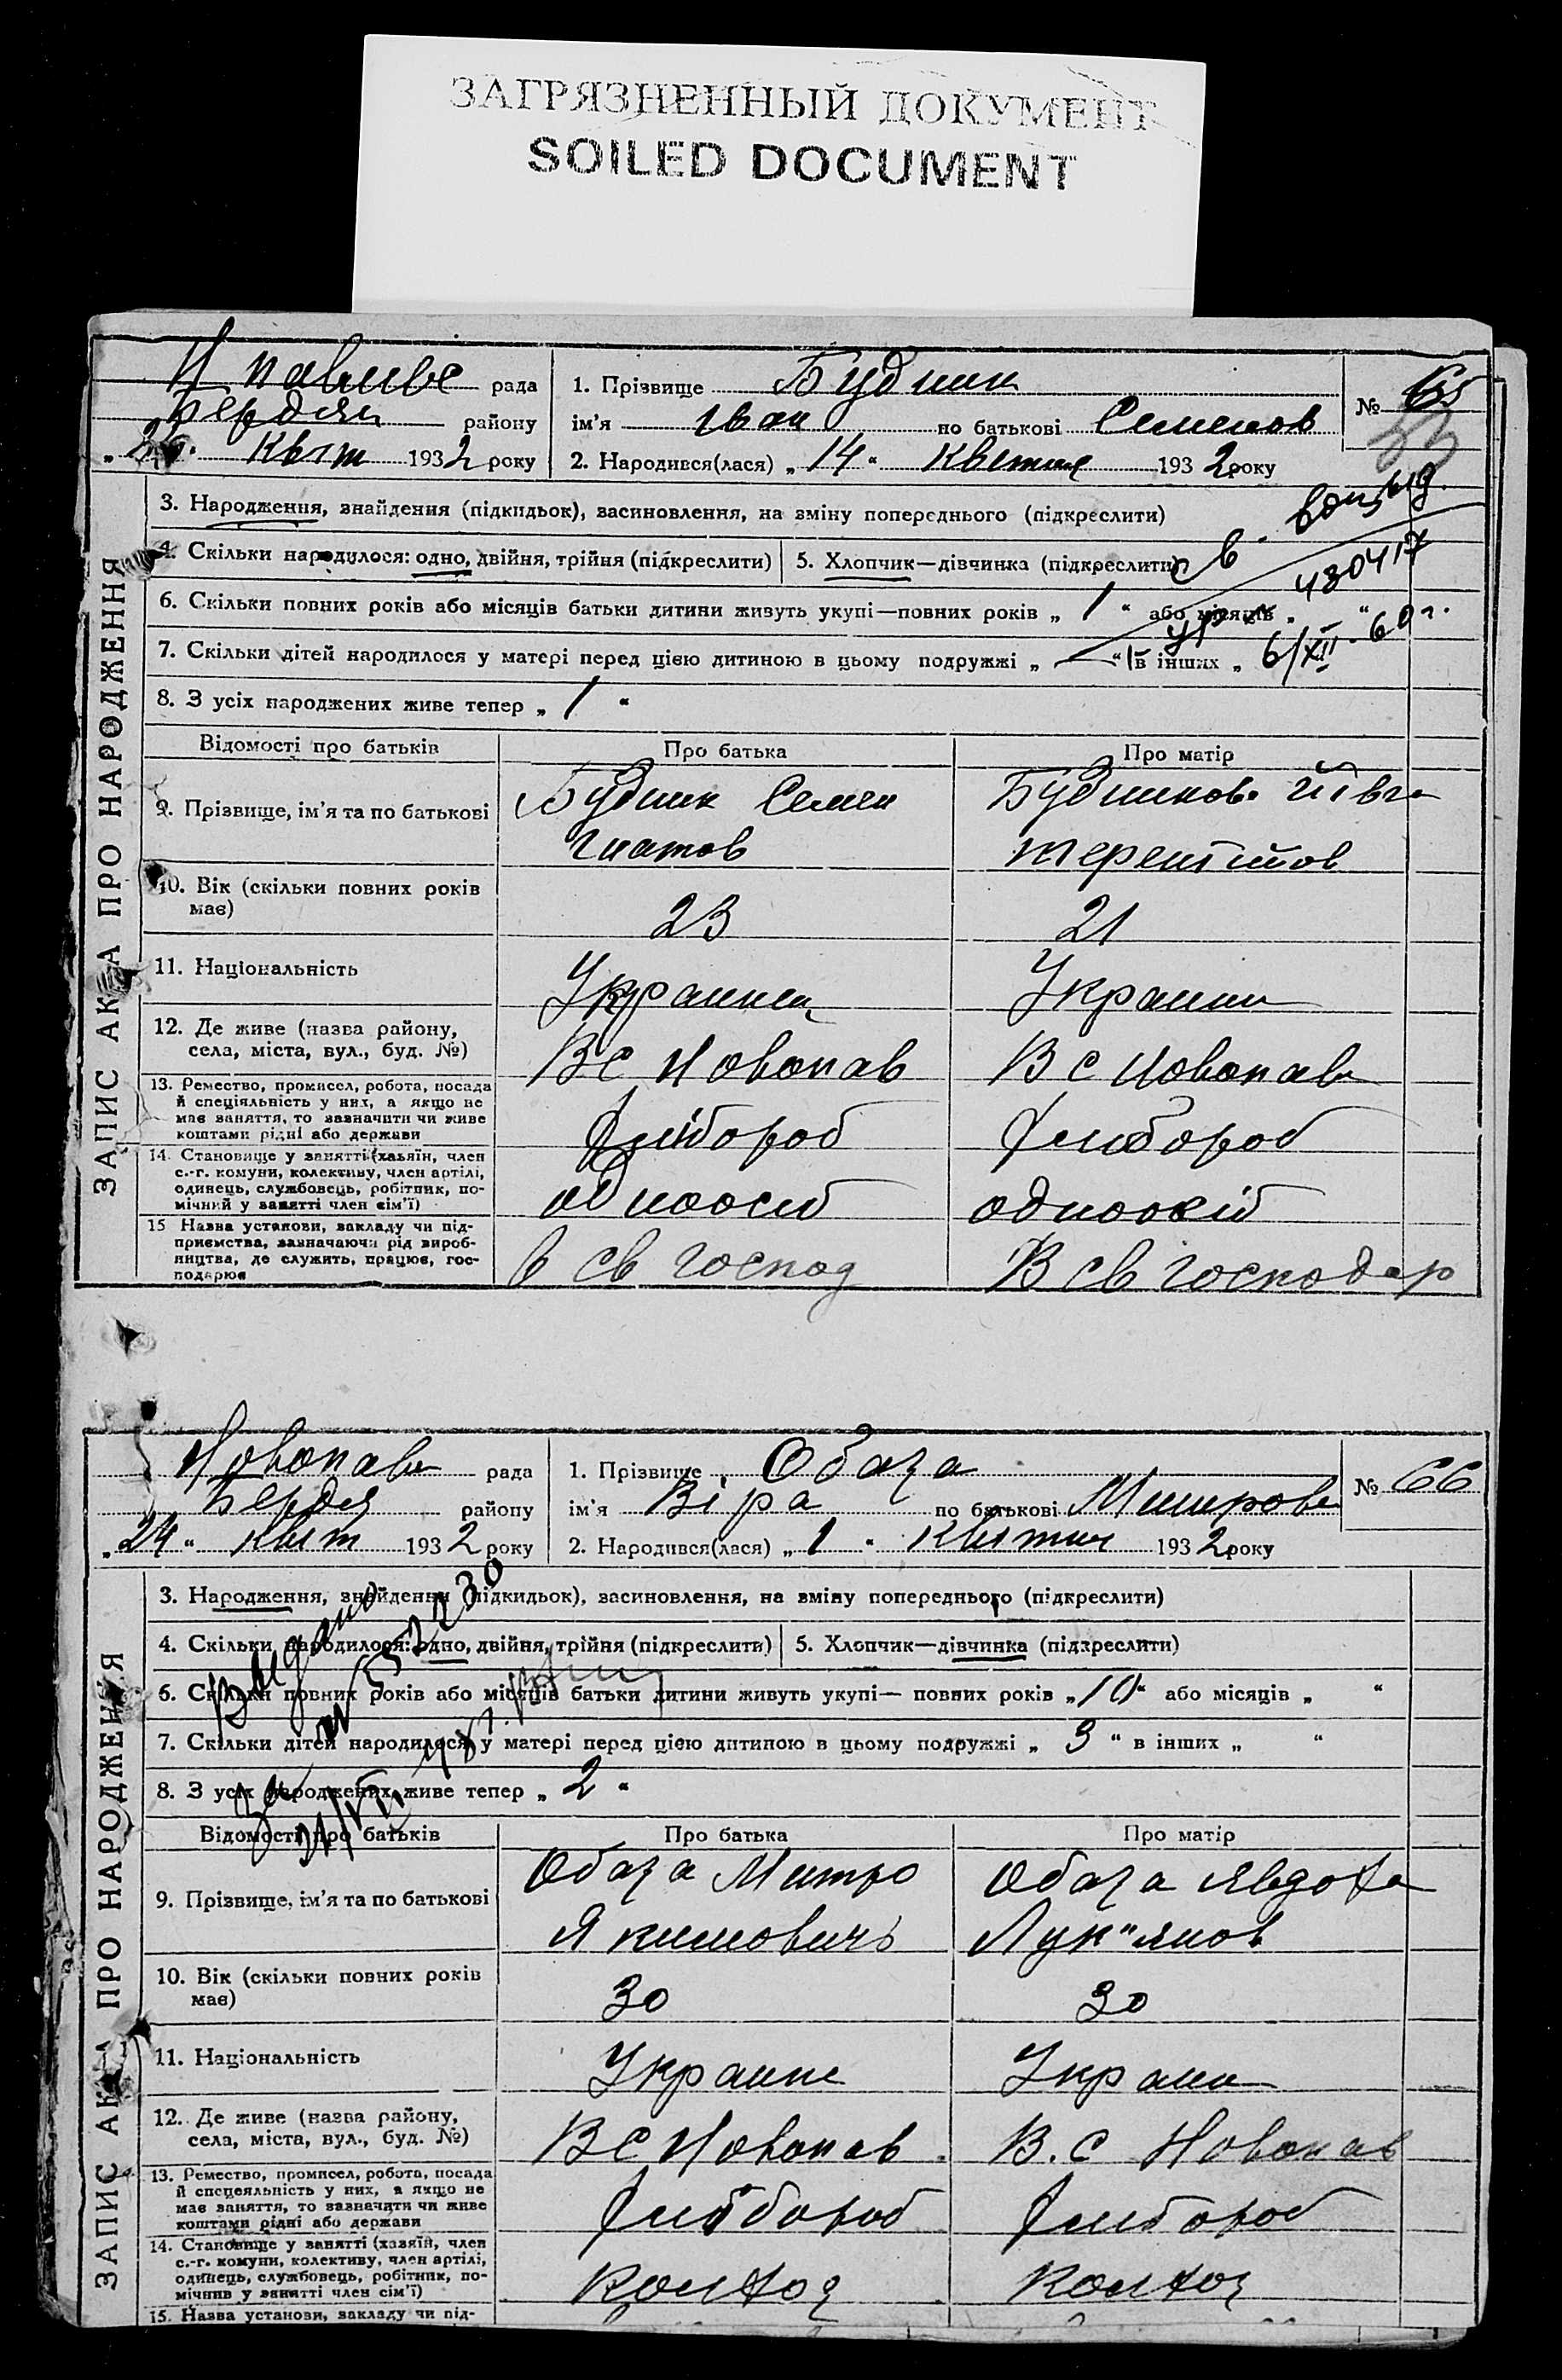 ЗАГРЯЗНЕННЫЙ ДОКУМЕНТ
SOILED DOCUMENT
рада
Бердян району
квіт 1932 року
1. Прізвище Будник
ім'я Іван по батькові Семенов
2. Народився(лася) „14“ Квітня 1932 року
№ 65
ЗАПИС АКТА ПРО НАРОДЖЕННЯ
3. Народження, знайдення (підкидьок), засиновлення, на зміну попереднього (підкреслити)
4. Скільки народилося: одно, двійня, трійня (підкреслити)
5. Хлопчик—дівчинка (підкреслити)
6. Скільки повних років або місяців батьки дитини живуть укупі—повних років „1“ або місяців „ “
7. Скільки дітей народилося у матері перед цією дитиною в цьому подружжі „—“ в інших „
8. З усіх народжених живе тепер „1“
480417
6/XII-60 г.
Відомості про батьків
Про батька
Про матір
9. Прізвище, ім'я та по батькові
Будник Семен
Гнатов
Будников Ївга
терентіїов
10. Вік (скільки повних років
має)
23
21
11. Національність
Украинец
Украин
12. Де живе (назва району,
села, міста, вул., буд. №)
ВС Новопав
В С Новопав
13. Ремество, промисел, робота, посада
й спеціяльність у них, а якщо не
має заняття, то зазначити чи живе
коштами рідні або держави
хлібороб
хлібороб
14. Становище у занятті (хазяїн, член
с.-г. комуни, колективу, член артілі,
одинець, службовець, робітник, по-
мічний у занятті член сім'ї)
одноосіб
одноосіб
15 Назва установи, закладу чи під-
приємства, зазначаючи рід вироб-
ництва, де служить, працює, гос-
подарює
в св господ
В св господар
Новопав рада
Бердя району
„24“ квіт 1932 року
1. Прізвище Обаза
ім'я Віра по батькові Митрова
2. Народився(лася) „1“ Квітня 1932 року
№ 66
ЗАПИС АКТА ПРО НАРОДЖЕННЯ
3. Народження, знайдення (підкидьок), засиновлення, на зміну попереднього (підкреслити)
4. Скільки народилося: одно, двійня, трійня (підкреслити)
5. Хлопчик—дівчинка (підкреслити)
6. Скільки повних років або місяців батьки дитини живуть укупі— повних років „10“ або місяців „ “
7. Скільки дітей народилося у матері перед цією дитиною в цьому подружжі „3“ в інших „ “
8. З усіх народжених живе тепер „2“
Выдано
Відомості про батьків
Про батька
Про матір
9. Прізвище, ім'я та по батькові
Обаза Митро
Якимовичь
Обаза Явдоха
Лук"янов
10. Вік (скільки повних років
має)
30
30
11. Національність
Украине
Украин
12. Де живе (назва району,
села, міста, вул., буд. №)
ВС Новопав
В. С Новопав
13. Ремество, промисел, робота, посада
й спецеяльність у них, а якщо не
має заняття, то зазначити чи живе
коштами рідні або держави
хлібороб
хлібороб
14. Становище у занятті (хазяїн, член
с.-г. комуни, колективу, член артілі,
одинець, службовець, робітник, по-
мічнив у занятті член сім'ї)
колхоз
колхоз
15. Назва установи, закладу чи під-